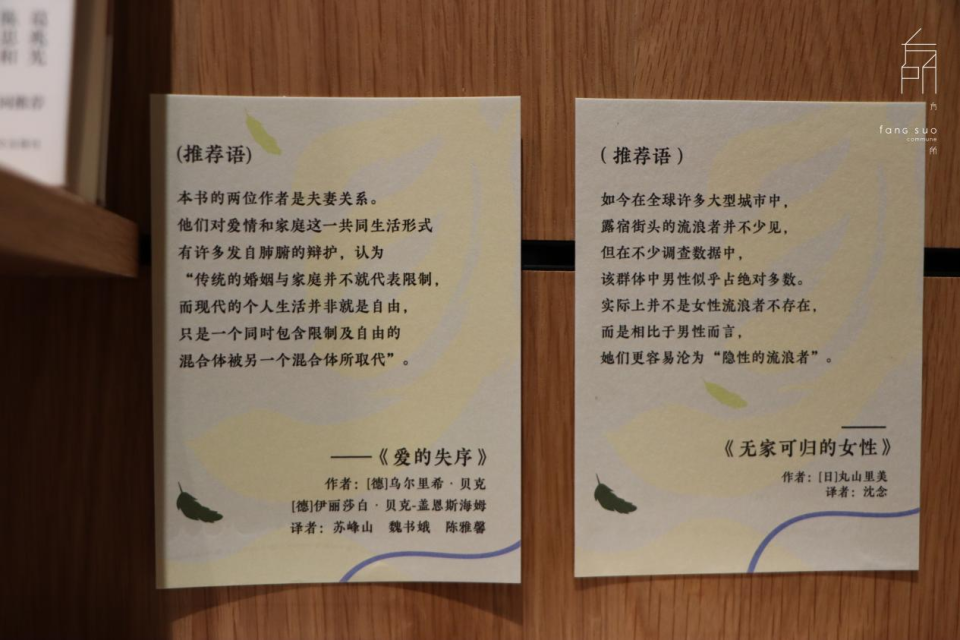 (推荐语)
本书的两位作者是夫妻关系。
他们对爱情和家庭这一共同生活形式
有许多发自肺腑的辩护，认为
“传统的婚姻与家庭并不就代表限制，
而现代的个人生活并非就是自由，
只是一个同时包含限制及自由的
混合体被另一个混合体所取代”。
——《爱的失序》
作者：[德]乌尔里希·贝克
[德]伊丽莎白·贝克-盖恩斯海姆
译者：苏峰山 魏书娥 陈雅馨
（推荐语）
如今在全球许多大型城市中，
露宿街头的流浪者并不少见，
但在不少调查数据中，
该群体中男性似乎占绝对多数。
实际上并不是女性流浪者不存在，
而是相比于男性而言，
她们更容易沦为“隐性的流浪者”。
——
《无家可归的女性》
作者：[日]丸山里美
译者：沈念
fang suo
commune